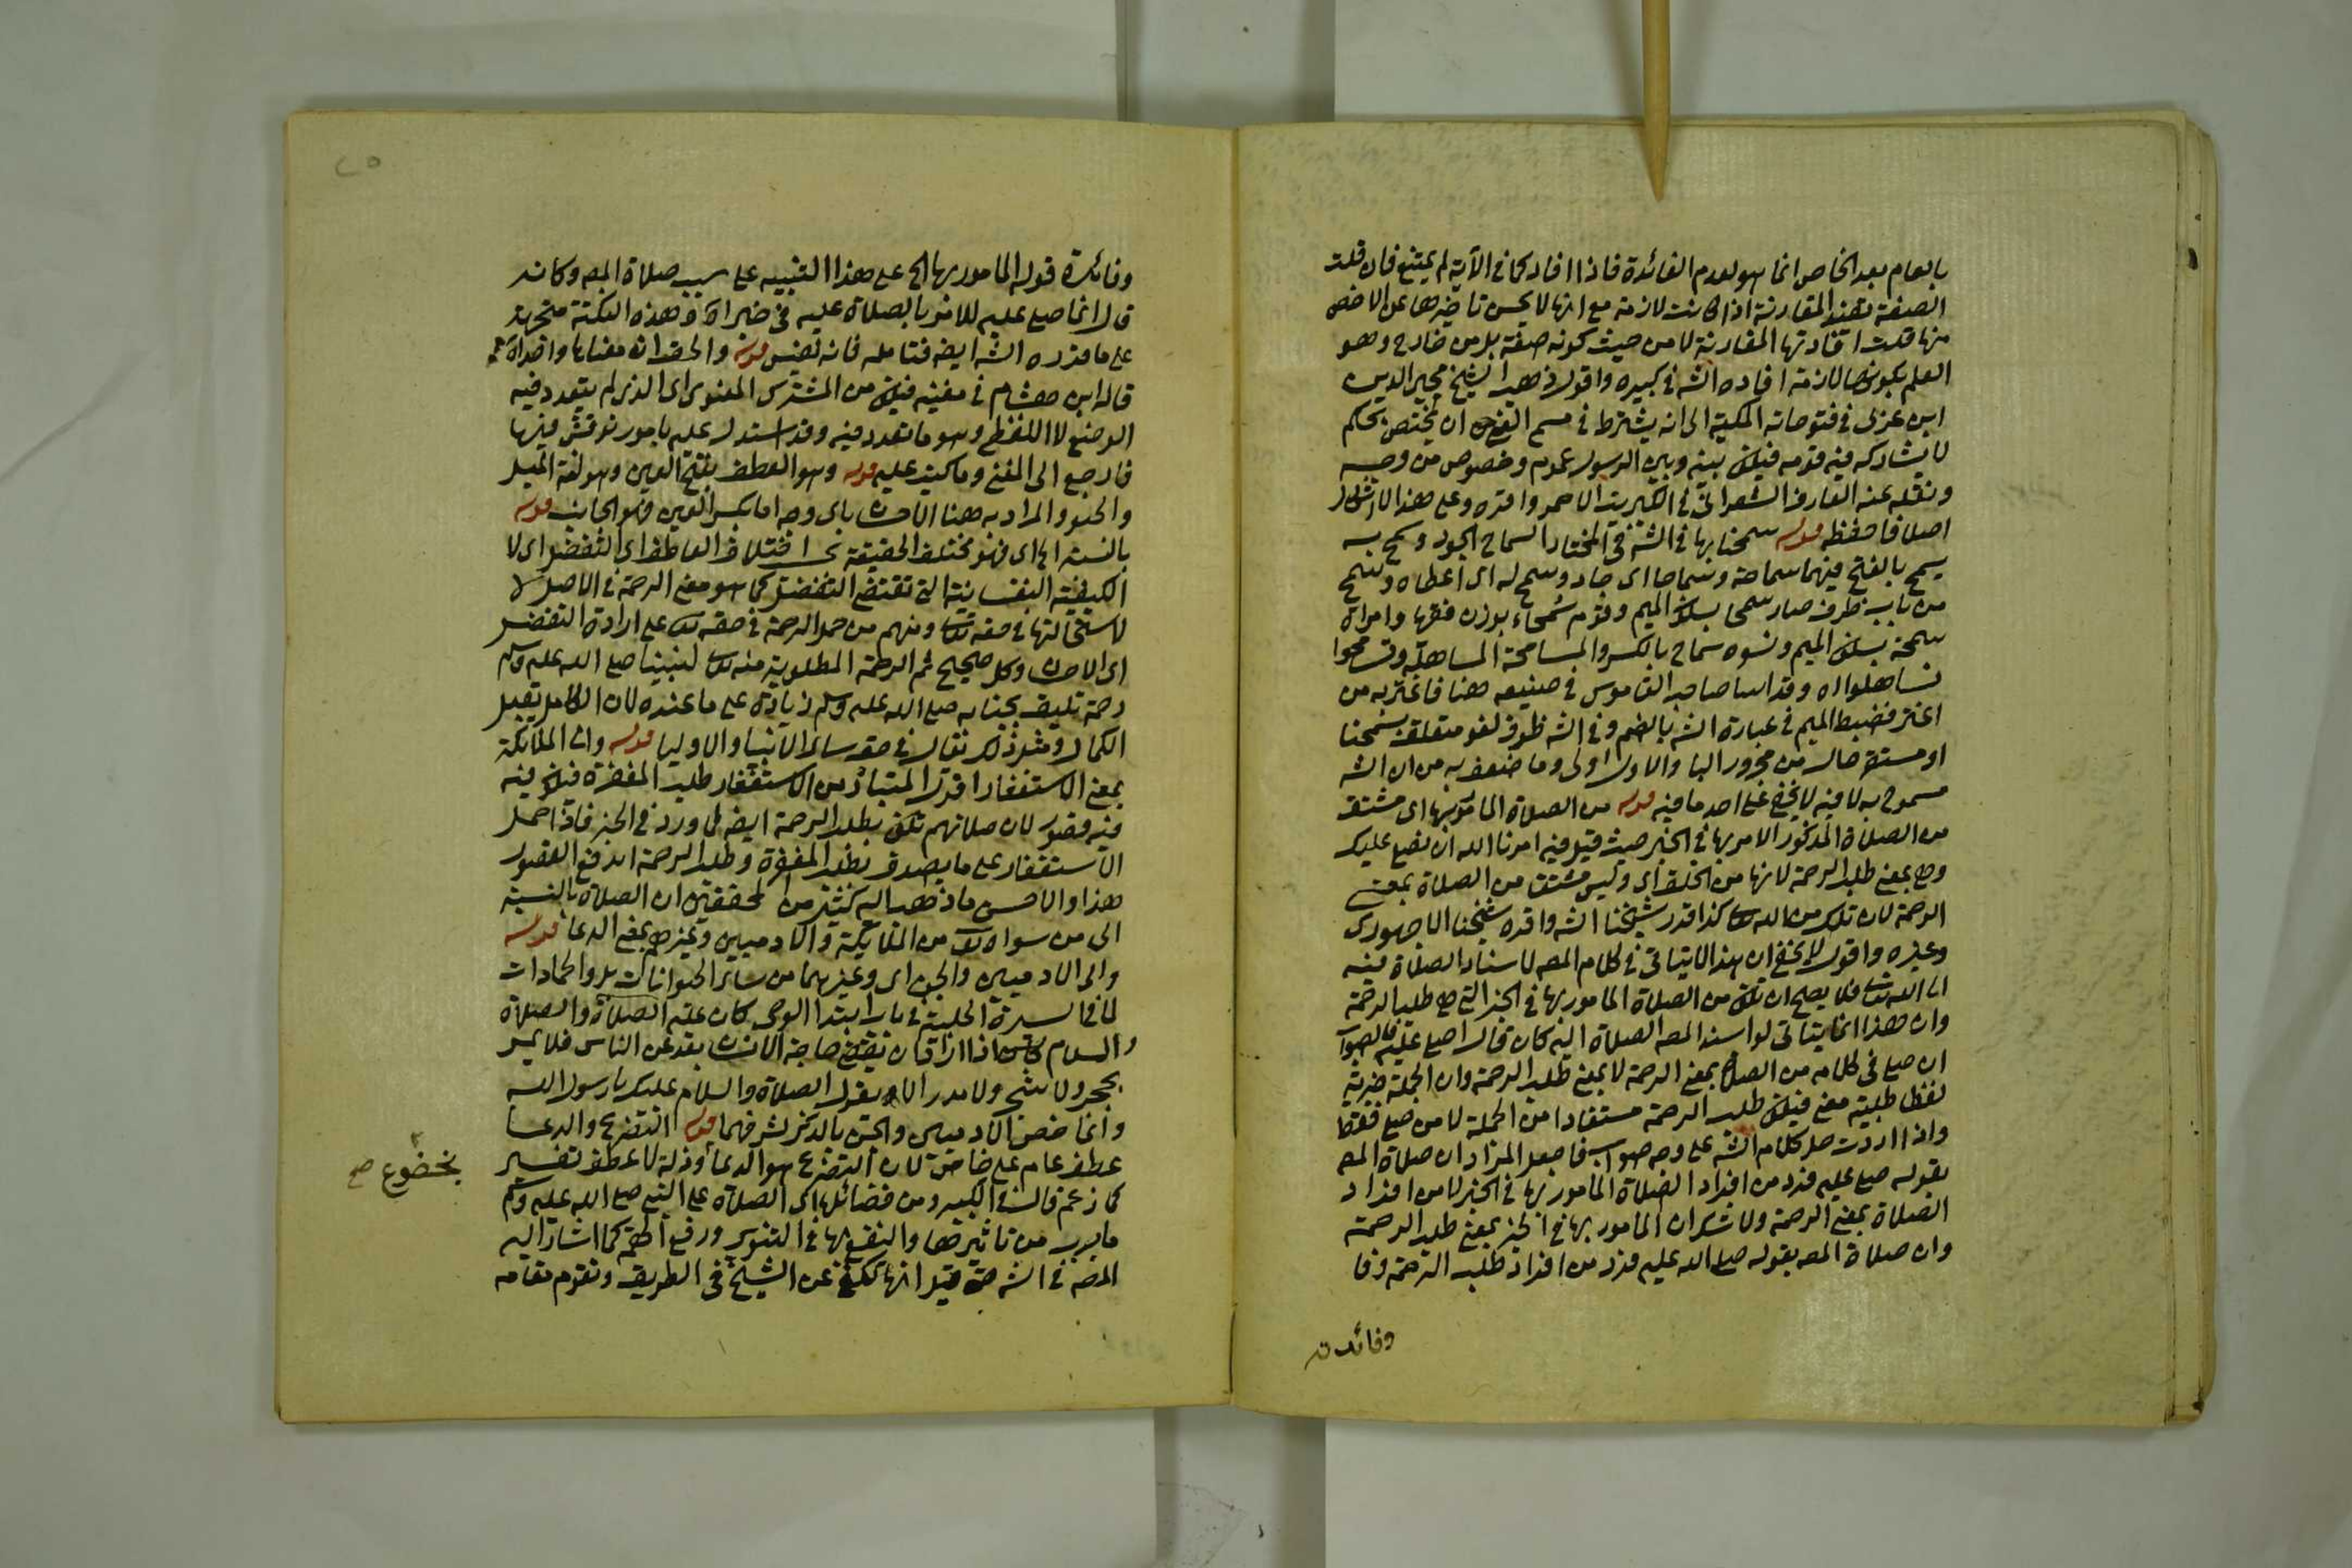 بالعام بعد الخاص انما هو لعدم الفائدة فاذا افاد كما في الآية لم يمتنع فان قلت
الصفة تفيد المقارنة اذا كانت لازمة مع انها لا يحسن تاخيرها عن الاخص
منها قلت افادتها المقارنة لا من حيث كونه صفة بل من خارج وهو
العلم بكونها لازمة افاده الشه في كبيره واقول ذهب الشيخ محيي الدين
ابن عربي في فتوحاته المكية الى انه يشترط في مسمى النبي ان يختص بحكم
لا يشاركه فيه قومه فيكون بينه وبين الرسول عموم وخصوص من وجه
ونقله عنه العارف الشعراني في الكبريت الاحمر واقره وعلى هذا لا اشكال
اصلا فاحفظه قوله سمحنا بها في الشه في المختار السماح الجود وسمح به
يسمح بالفتح فيهما سماحة وسماحا اي جاد وسمح له اي اعطاه وسمح
من باب ظرف صار سمحا بسكون الميم وقوم سمحاء بوزن فقهاء وامراة
سمحة بسكون الميم ونسوة سماح بالكسر والمسامحة المساهلة وتسامحوا
تساهلوا اه وقد اسا صاحب القاموس في صنيعه هنا فاغتر به من
اغتر فضبط الميم في عبارة الشه بالضم وفي الشه ظرف لغو متعلق بسمحنا
او مستقر حال من مجرور البا والاول اولى وما ضعف به من ان الشه
مسموح به لا فيه لا يخفى على احد ما فيه قوله من الصلاة المامور بها اي مشتق
من الصلاة المذكور الامر بها في الخبر حيث قيل فيه امرنا الله ان نصلي عليك
وهي بمعنى طلب الرحمة لانها من الخلق اي وليس مشتق من الصلاة بمعنى
الرحمة لان تلك من الله تعالى كذا قدر شيخنا الشه واقره شيخنا الاجهوري
وغيره واقول لا يخفى ان هذا لا يتاتى في كلام المصـ لاسناد الصلاة فيه
الى الله تعالى فلا يصح ان تكون من الصلاة المامور بها في الخبر التي هي طلب الرحمة
وان هذا انما يتاتى لو اسند المصـ الصلاة اليه كان قال اصلي عليه فالصواب
ان صلى في كلامه من الصلاة بمعنى الرحمة لا بمعنى طلب الرحمة وان الجملة خبرية
لفظا طلبية معنى فيكون طلب الرحمة مستفادا من الجملة لا من صلى فقط
واذا اردت حمل كلام الشه على وجه صواب فاجعل المراد ان صلاة المصـ
بقوله صلى عليه فرد من افراد الصلاة المامور بها في الخبر لا من افراد
الصلاة بمعنى الرحمة ولا شك ان المامور بها في الخبر بمعنى طلب الرحمة
وان صلاة المصـ بقوله صلى الله عليه فرد من افراد طلب الرحمة وفا
وفائدته
٢٥
وفائدة قوله المامور بها الخ على هذا التنبيه على سبب صلاة المصـ وكانه
قال انما صلى عليه للامر بالصلاة عليه في خبر اه وهذه النكتة متجهة
على ما قرره الشه ايضا فتامله فانه نفيس قوله والحق انه معناها واحد اه
قاله ابن هشام في مغنيه فيكون من المشترك المعنوي اي الذي لم يتعدد فيه
الوضع لا اللفظي وهو ما تعدد فيه وقد استدل عليه بامور نوقش فيها
فارجع الى المغني وما كتب عليه قوله وهو العطف بفتح العين وهو لغة الميل
والحنو والمراد به هنا الاحسان باي وجه اما بكسر العين فهو الجانب قوله
بالنسبة الخ اي فهو مختلف الحقيقة بحسب اختلاف العاطف اي التفضل اي لا
الكيفية النفسانية التي تقتضي التفضل كما هو معنى الرحمة في الاصل لا
لاستحالتها في حقه تعالى ومنهم من حمل الرحمة في حقه تعالى على ارادة التفضل
اي الاحسان وكل صحيح ثم الرحمة المطلوبة منه تعالى لنبينا صلى الله عليه وسلم
رحمة تليق بجنابه صلى الله عليه وسلم زيادة على ما عنده لان الكامل يقبل
الكمال ومثل ذلك يقال في حق سائر الانبياء والاوليا قوله والى الملائكة
بمعنى الاستغفار اقول المتبادر من الاستغفار طلب المغفرة فيكون فيه
فيه قصور لان صلاتهم تكون بطلب الرحمة ايضا كما ورد في الخبر فاذا حمل
الاستغفار على ما يصدق بطلب المغفرة وطلب الرحمة اندفع القصور
هذا والاحسن ما ذهب اليه كثير من المحققين ان الصلاة بالنسبة
الى من سواه تعالى من الملائكة والادميين وغيرهم بمعنى الدعا قوله
والى الادميين والجن اي وغيرهما من سائر الحيوانات بل والجمادات
لما في السيرة الحلبية في باب ابتدا الوحي كان عليه الصلاة والصلاة
والسلام اذا اراد ان يقضي حاجة الانسان بعد عن الناس فلا يمر
بحجر ولا شجر ولا مدر الا ويقول الصلاة والسلام عليك يا رسول الله
وانما خص الادميين والجن بالذكر لشرفهما قوله التضرع والدعا
عطف عام على خاص لان التضرع هو الدعا وذلة لا عطف تفسير
بخضوع صح
كما زعم قال في الكبير ومن فضائلها اي الصلاة على النبي صلى الله عليه وسلم
ما جرب من تاثيرها والنفع بها في التنوير ورفع الهمة كما اشار اليه
المصـ في الشه حتى قيل انها تكفي عن الشيخ في الطريق وتقوم مقامه